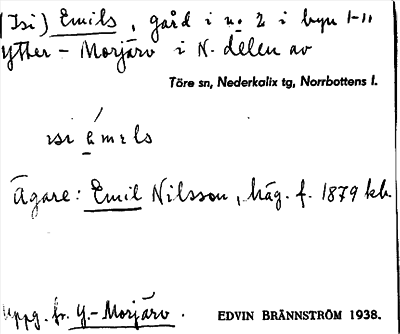 (Isi) Emils, gård i n:o 2 i byn
Ytter-Morjärv i N. delen av
Töre sn, Nederkalix tg, Norrbottens l.
ısı émıls
Ägare: Emil Nilsson, häg. f. 1879 kb.
Uppg. fr. Y.-Morjärv.
EDVIN BRÄNNSTRÖM 1938.